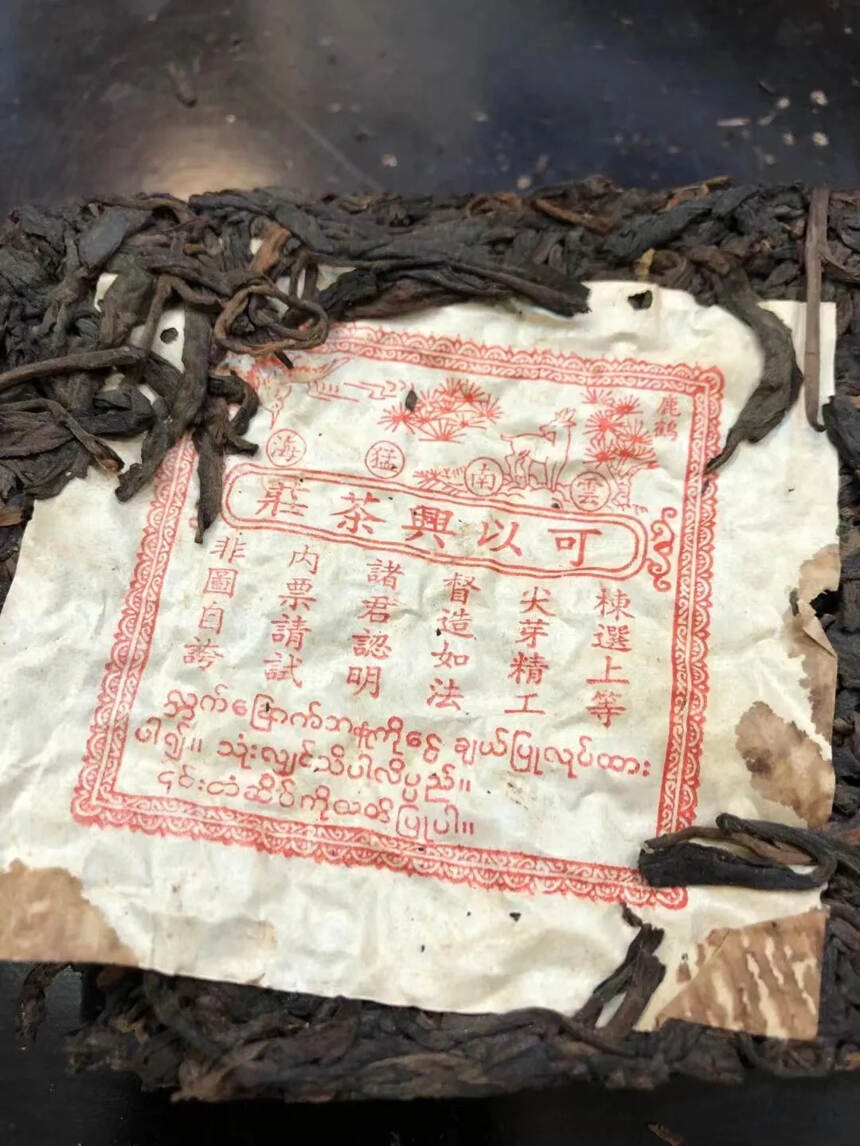 鹿鶴
雲南猛海
可以興茶莊
棟選上等
尖芽精工
督造如法
諸君認明
内票請試
非圖自誇
ချယ်ပြုလုပ်ထား
ပါ၍။ သုံးလျှင်သိပါလိမ့်မည်။
၎င်းတံဆိပ်ကိုသတိပြုပါ။